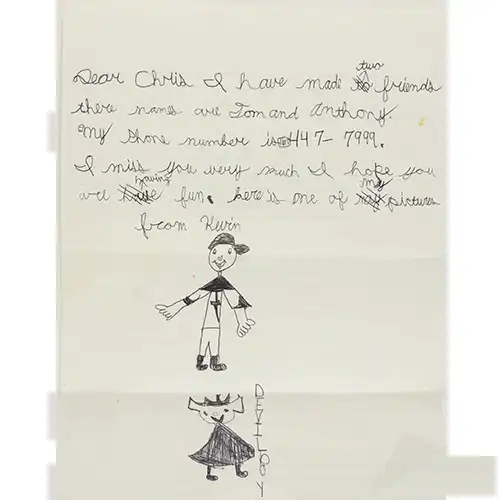 Dear Chris I have made two friends
there names are Tom and Anthony.
My phone number is 447-7999.
I miss you very much I hope you
are having fun. here is one of my pictures
from Kevin
DEVILBOY